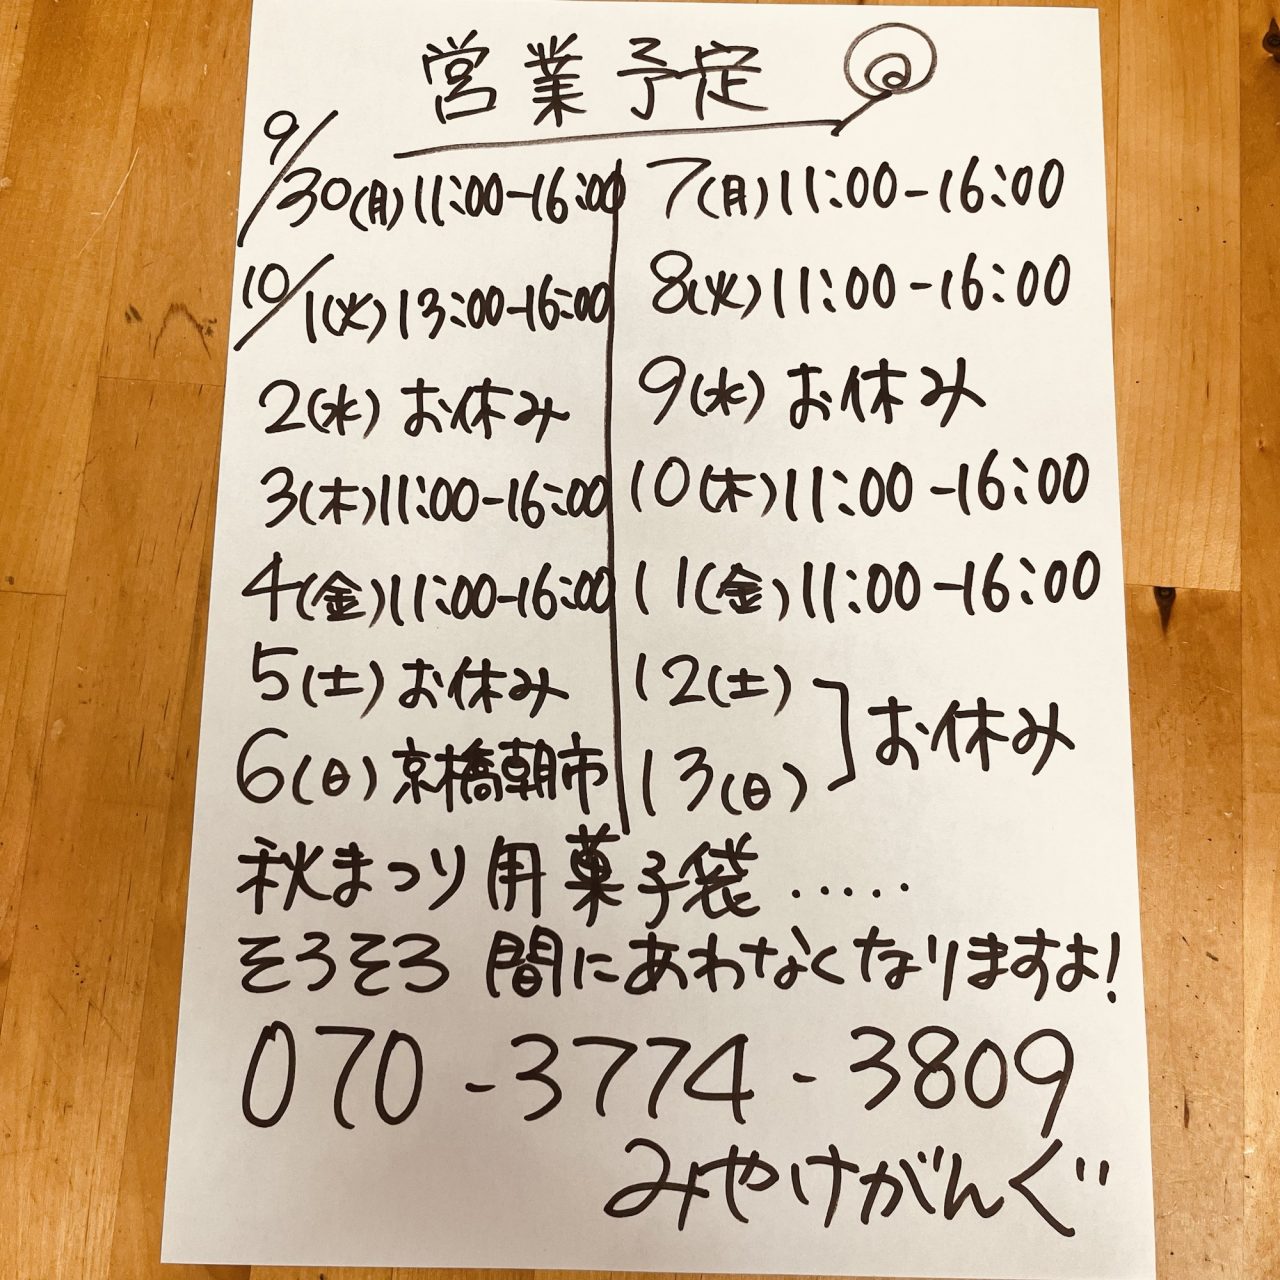 営業予定
9/30(月)11:00-16:00
10/1(火)13:00-16:00
2(水)お休み
3(木)11:00-16:00
4(金)11:00-16:00
5(土)お休み
6(日)京橋朝市
7(月)11:00-16:00
8(火)11:00-16:00
9(水)お休み
10(木)11:00-16:00
11(金)11:00-16:00
12(土)
13(日)
お休み
秋まつり用菓子袋.....
そろそろ間にあわなくなりますよ!
070-3774-3809
みやけがんぐ